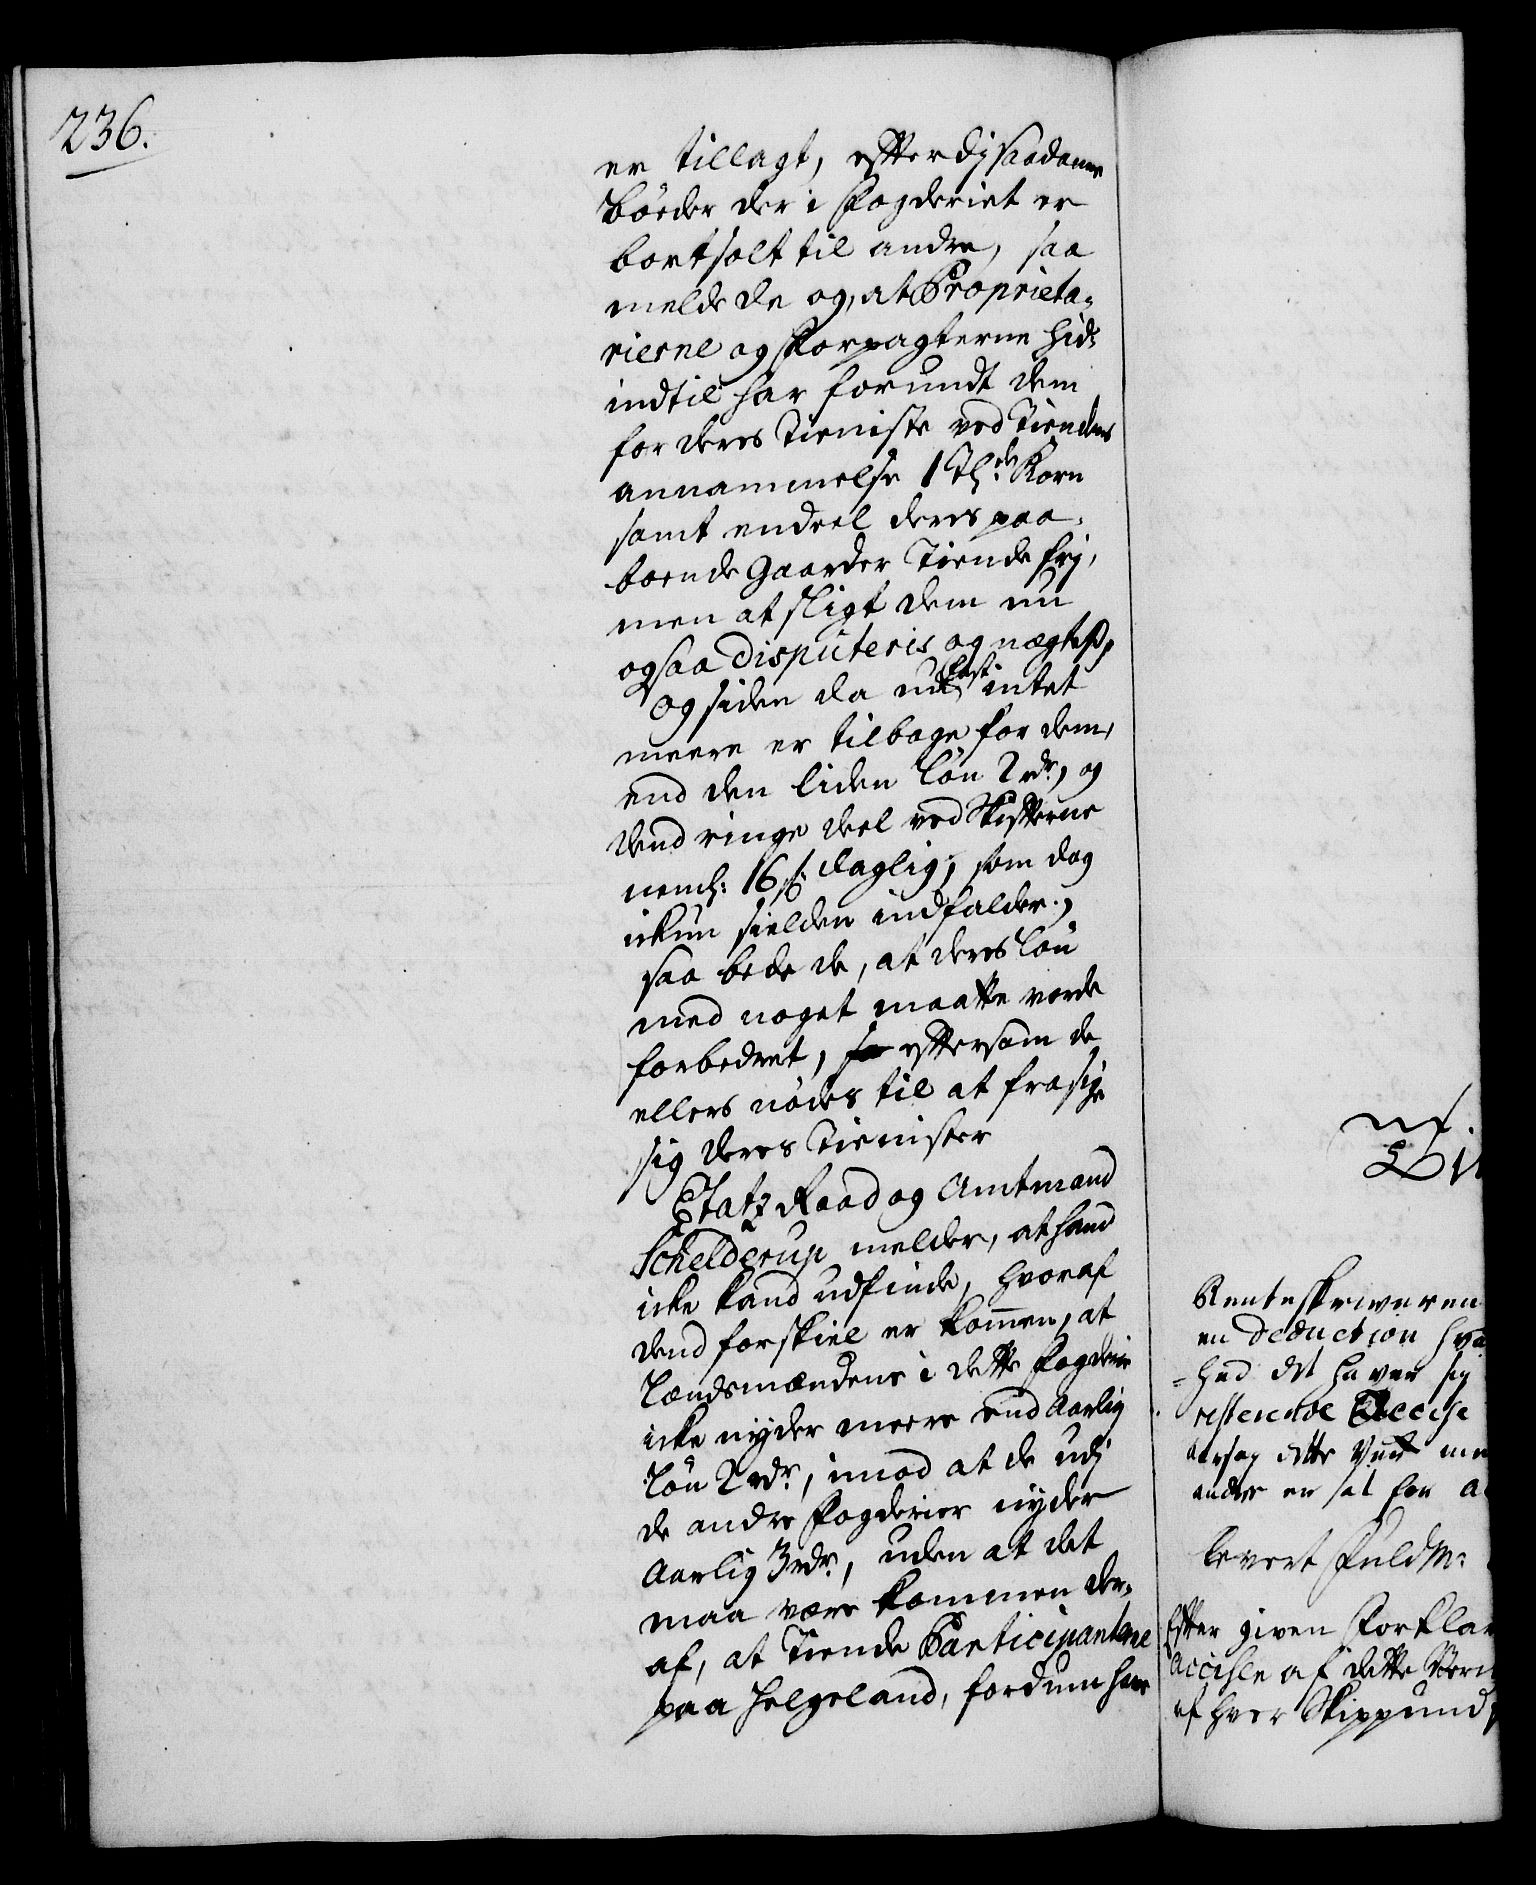 236.
er tillagt, efterdj saadanne
böeder der i Fogderiet er
bortsolt til andre, saa
melde de og, at Proprieta-
rierne og Forpagterne hid-
indtil har forundt dem
for deres Tieniste ved Tiendens
annammelse 1 Tde Korn
samt endeel deres paa-
boende Gaarder Tiende frj,
men at sligt dem nu
ogsaa disputeris og nægtes,
og siden da nu fast intet
meere er tilbage for dem,
end den liden Lön 2 rdr, og
dend ringe deel ved Skifterne
neml: 16 s. daglig, som dog
ikun sielden indfalder,
saa bede de, at deres Lön
med noget maatte vorde
forbedret, eftersom de
ellers nödes til at frasige
sig deres Tienister
Etatz Raad og Amtmand
Schelderup melder, at hand
icke kand udfinde, hvoraf
dend forskiel er kommen, at
Lændsmændene i dette Fogderie
icke nyder meere end Aarlig
Lön 2 rdr, imod at de udj
de andre Fogderier nyder
Aarlig 3 rdr, uden at det
maa være kommen der-
af, at Tiende Participanterne
paa Helgeland, fordum har
Renteskriveren
en Deduction
hud det haver sig
resterende Accise
aarsag dette
andre er sat for
levert Fuldm:
Efter given Forklar
Accisen af dette
af hver Skippund